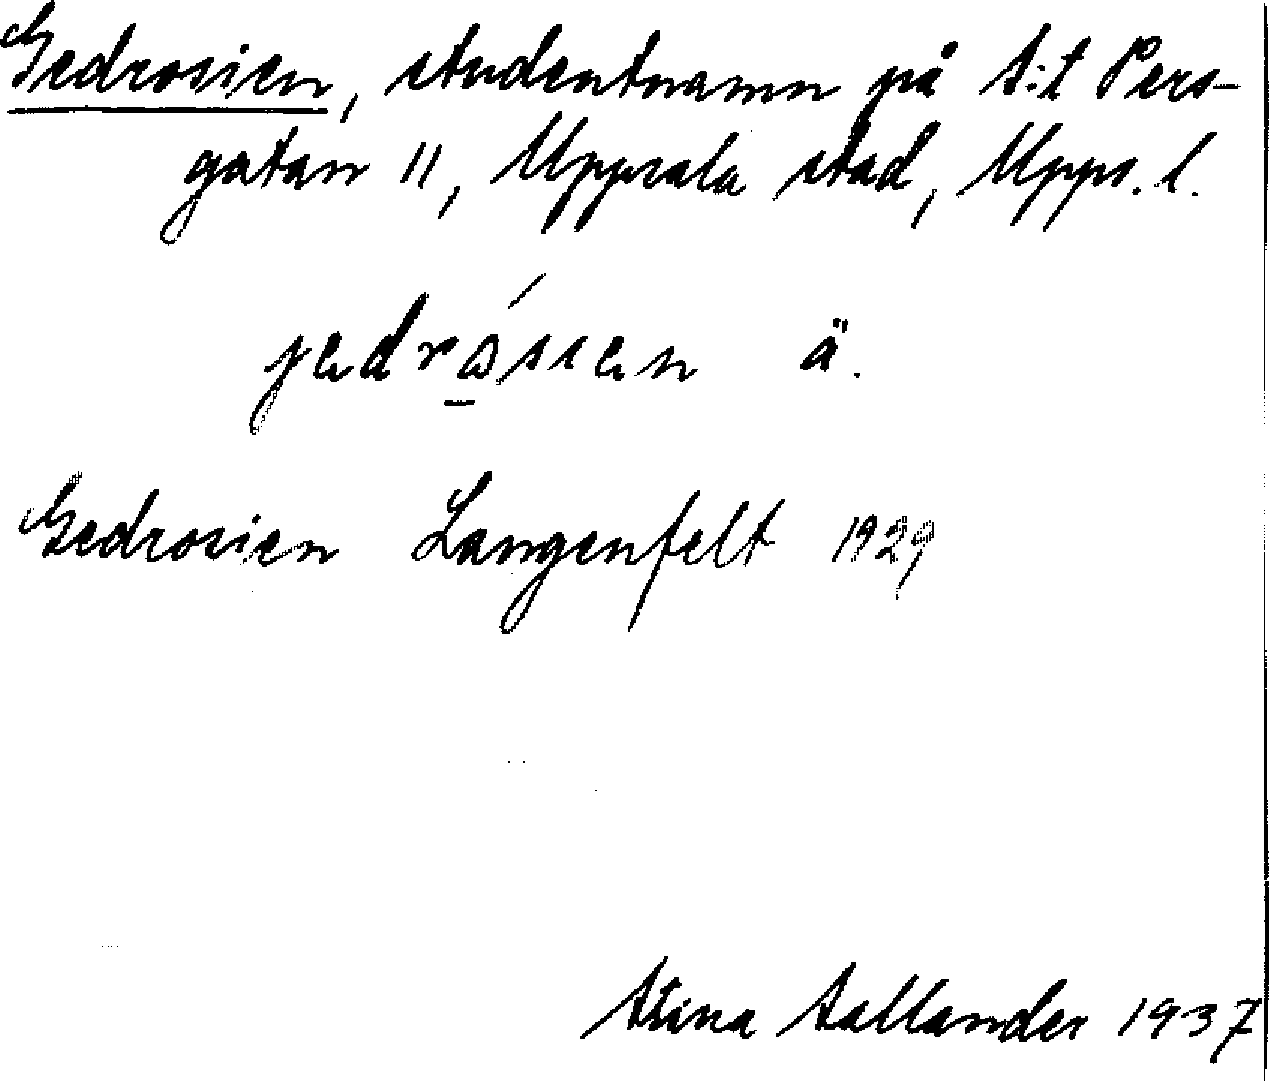 Gedrosien, studentnamn på S:t Pers-
gatan 11, Uppsala stad, Upps. l.
jedrósien ä.
Gedrosien Langenfelt 1929
Stina Sallander 1937